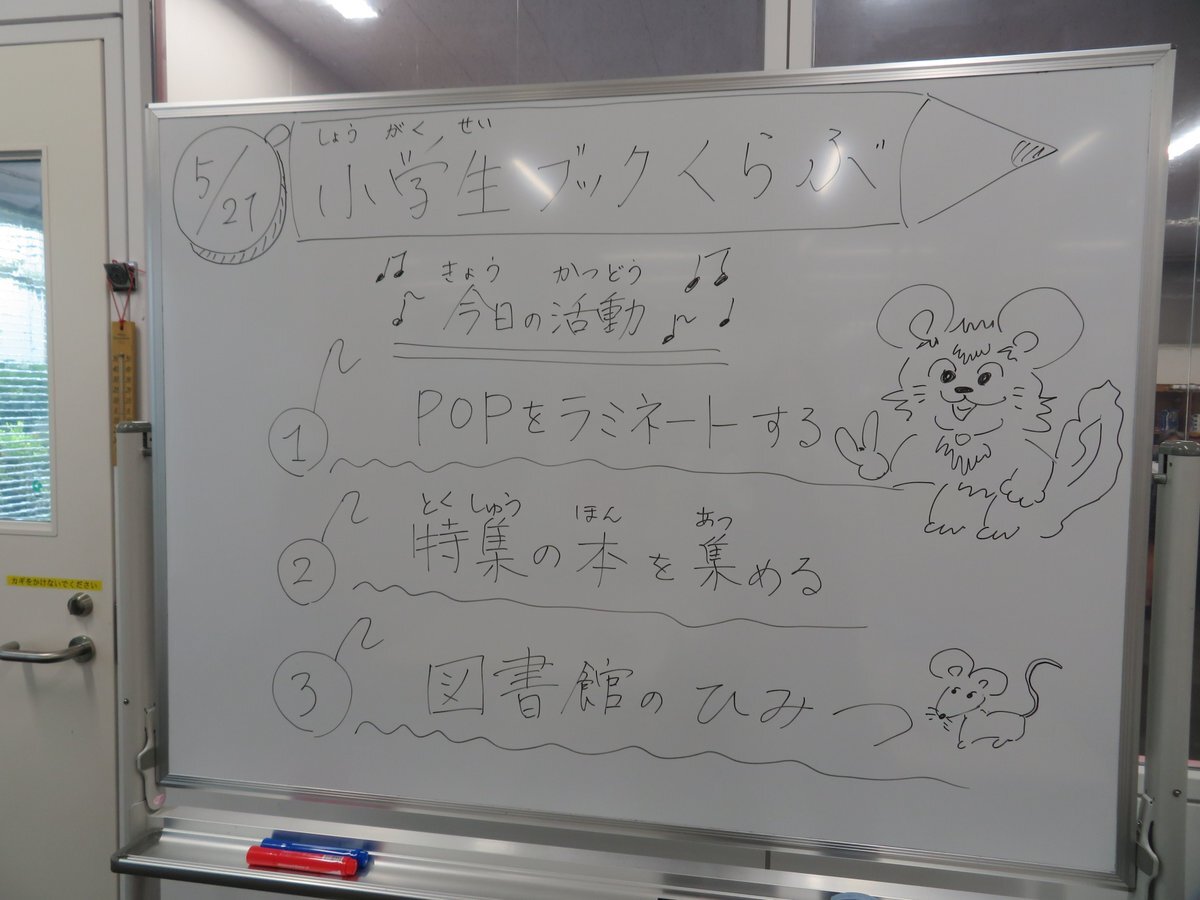 5/27
しょう がく せい
小学生ブックくらぶ
きょう かつどう
今日の活動
1 POPをラミネートする
とくしゅう ほん あつ
2 特集の本を集める
3 図書館のひみつ
カギをかけないでください